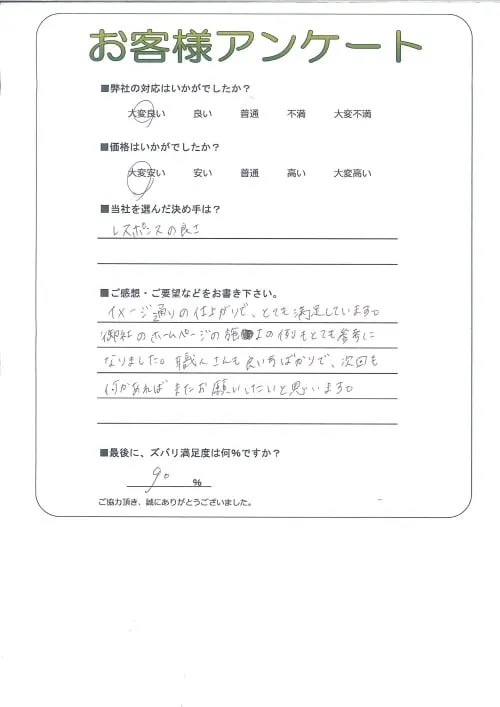 お客様アンケート
■弊社の対応はいかがでしたか？
大変良い 良い 普通 不満 大変不満
■価格はいかがでしたか？
大変安い 安い 普通 高い 大変高い
■当社を選んだ決め手は？
レスポンスの良さ
■ご感想・ご要望などをお書き下さい。
イメージ通りの仕上がりで、とても満足しています。
御社のホームページの施工の例もとても参考に
なりました。職人さんも良い方ばかりで、次回も
何かあればまたお願いしたいと思います。
■最後に、ズバリ満足度は何%ですか？
90 %
ご協力頂き、誠にありがとうございました。